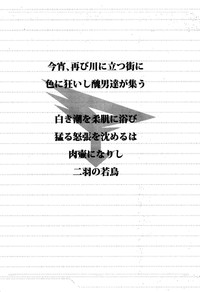 今宵、再び川に立つ街に
色に狂いし醜男達が集う
白き潮を柔肌に浴び
猛る怒張を沈めるは
肉壷になりし
二羽の若鳥